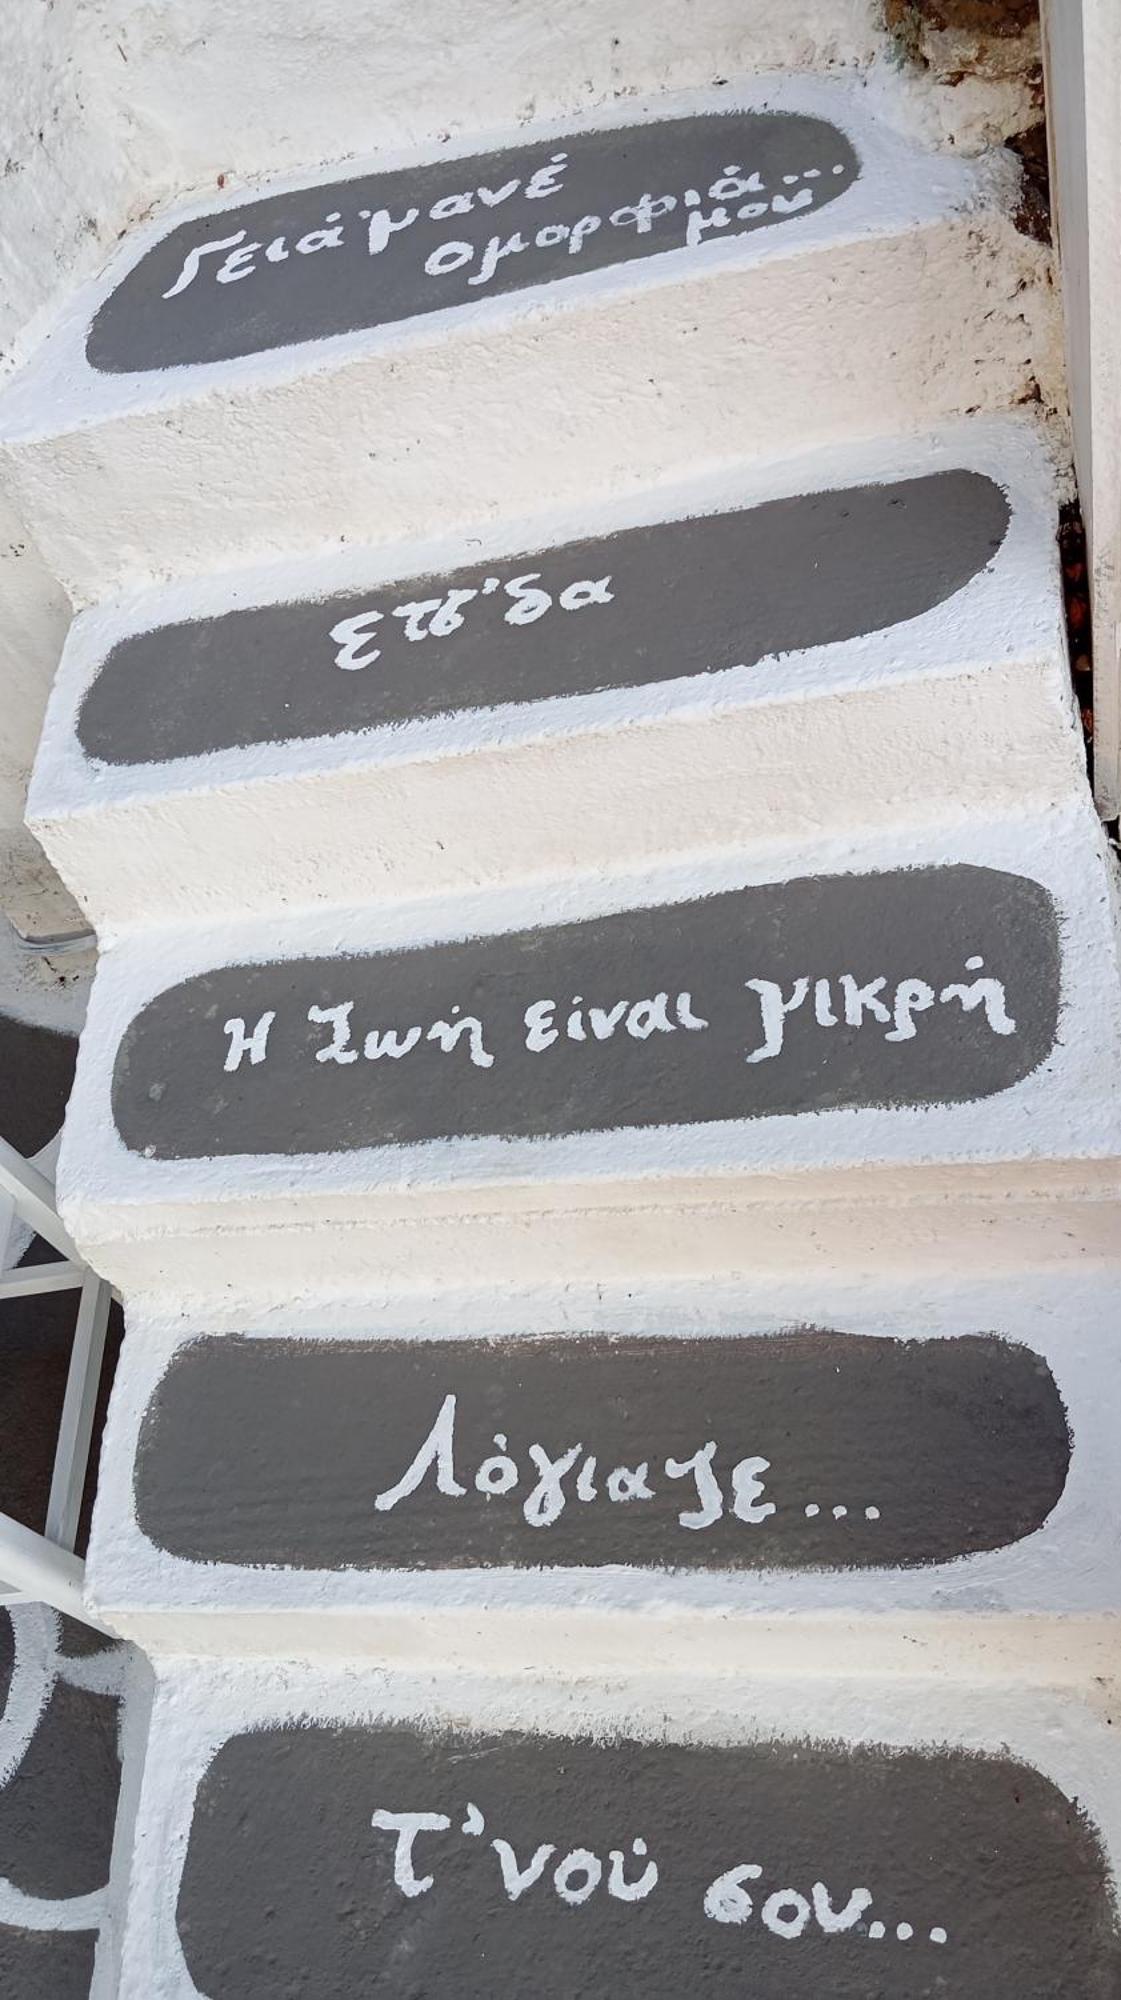 Γειά μανέ
ομορφιά...
μου
επσ'δα
Η Ζωή είναι μικρή
Λόγιαζε...
Τ' νού σου...